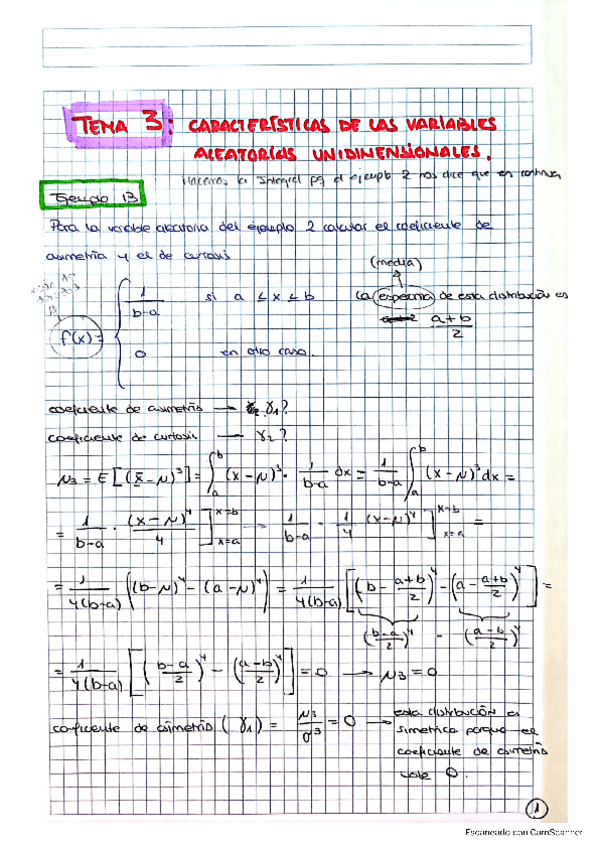 TEMA 3: CARACTERÍSTICAS DE LAS VARIABLES
ALEATORIAS UNIDIMENSIONALES.
Hacemos la Integral pq el ejemplo 2 nos dice que es continua
Ejemplo 13
Para la variable aleatoria del ejemplo 2 calcular el coeficiente de
asimetría y el de curtosis
(media)
f(x) = { 1/(b-a) si a ≤ x ≤ b
0 en otro caso.
La esperma de esta distribución es
(a+b)/2
coeficiente de asimetría → γ₁?
coeficiente de curtosis — γ₂?
μ₃ = E[(x-μ)³] = ∫ₐᵇ (x-μ)³ · 1/(b-a) dx = 1/(b-a) ∫ₐᵇ (x-μ)³ dx =
= 1/(b-a) · (x-μ)⁴/4 ]ₓ₌ₐˣ⁼ᵇ → 1/(b-a) · 1/4 (x-μ)⁴ ]ₓ₌ₐˣ⁼ᵇ =
= 1/(4(b-a)) ((b-μ)⁴ - (a-μ)⁴) = 1/(4(b-a)) [(b - (a+b)/2)⁴ - (a - (a+b)/2)⁴] =
((b-a)/2)⁴ - ((a-b)/2)⁴
= 1/(4(b-a)) [((b-a)/2)⁴ - ((a-b)/2)⁴] = 0 → μ₃ = 0
coeficiente de asimetría (γ₁) = μ₃/σ³ = 0 → esta distribución es
simetrica porque el
coeficiente de asimetría
vale 0.
1
Escaneado con CamScanner